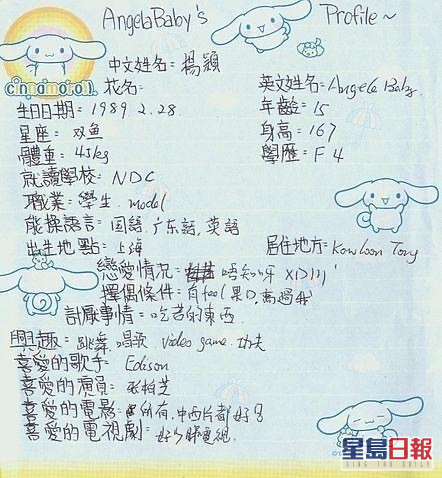 AngelaBaby's Profile~
中文姓名=楊穎
cinnamoroll
花名= 英文姓名=Angela Baby.
生日日期=1989.2.28. 年齡=15
星座=双鱼 身高=167
體重=45kg 學歷=F4
就讀學校=NDC
職業=學生.model
能操語言=国語.广东話.英語
出生地點=上海 居住地方=Kowloon Tong
戀愛情況= 唔知呀 XD!!!
擇偶條件=有feel果D.高過我
討厭事情=吃苦的東西.
興趣=跳舞.唱歌.video game.功夫
喜愛的歌手=Edison
喜愛的演員=張柏芝
喜愛的電影=所有.中西片都好
喜愛的電視劇=好少睇電視.
星島日報
SING TAO DAILY